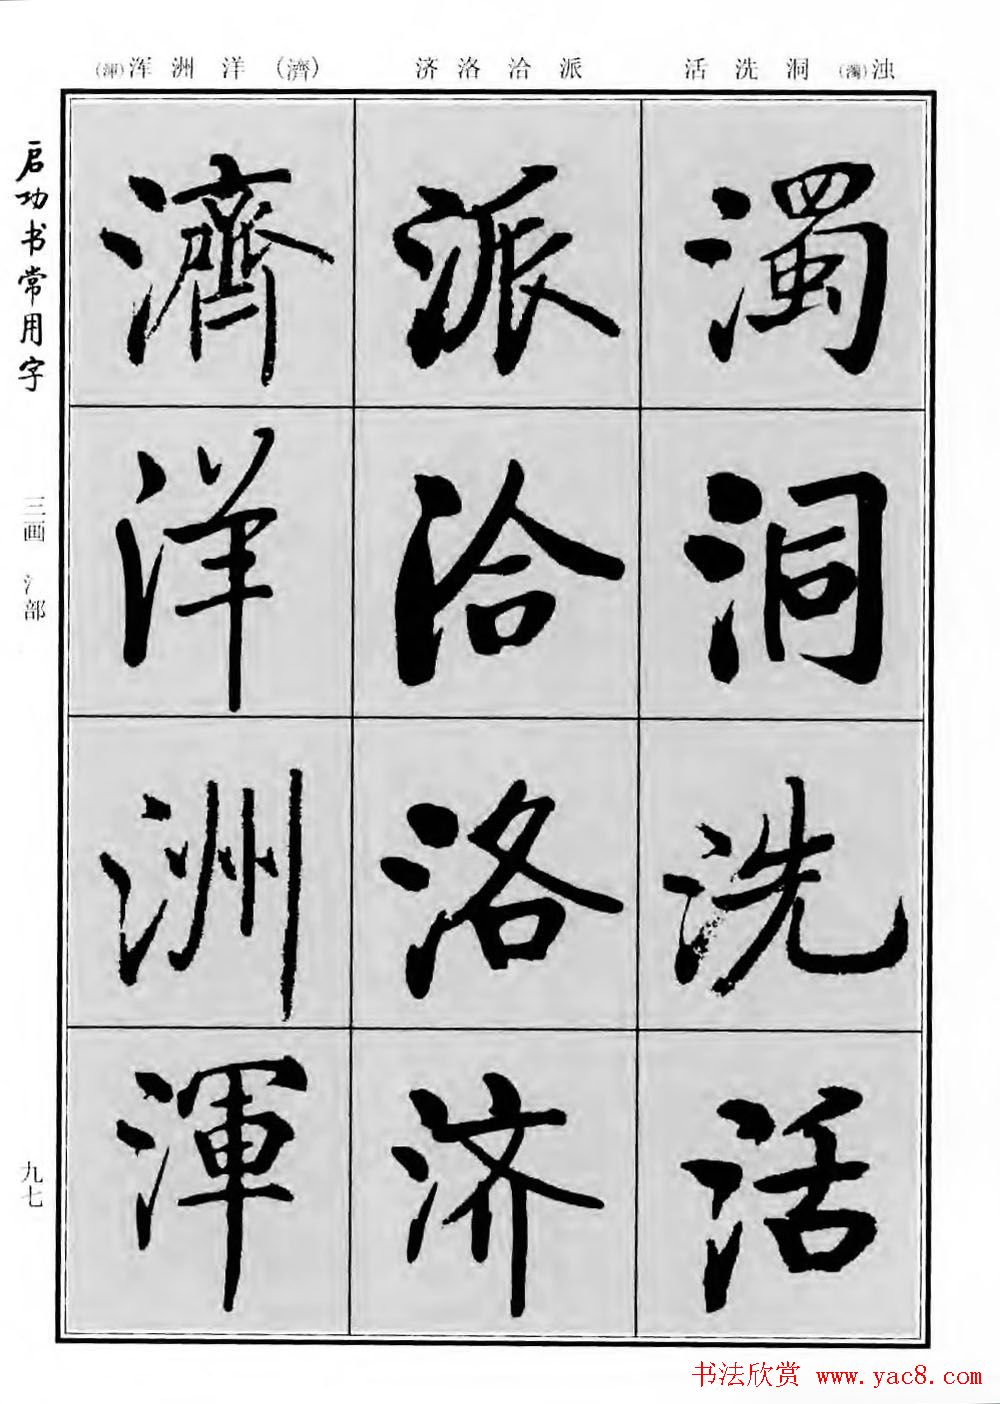 浊(濁)洞洗活
派洽洛济
(濟)洋洲浑(渾)
濁
洞
洗
活
派
洽
洛
济
濟
洋
洲
渾
启功书常用字
三画 氵部
九七
书法欣赏 www.yac8.com